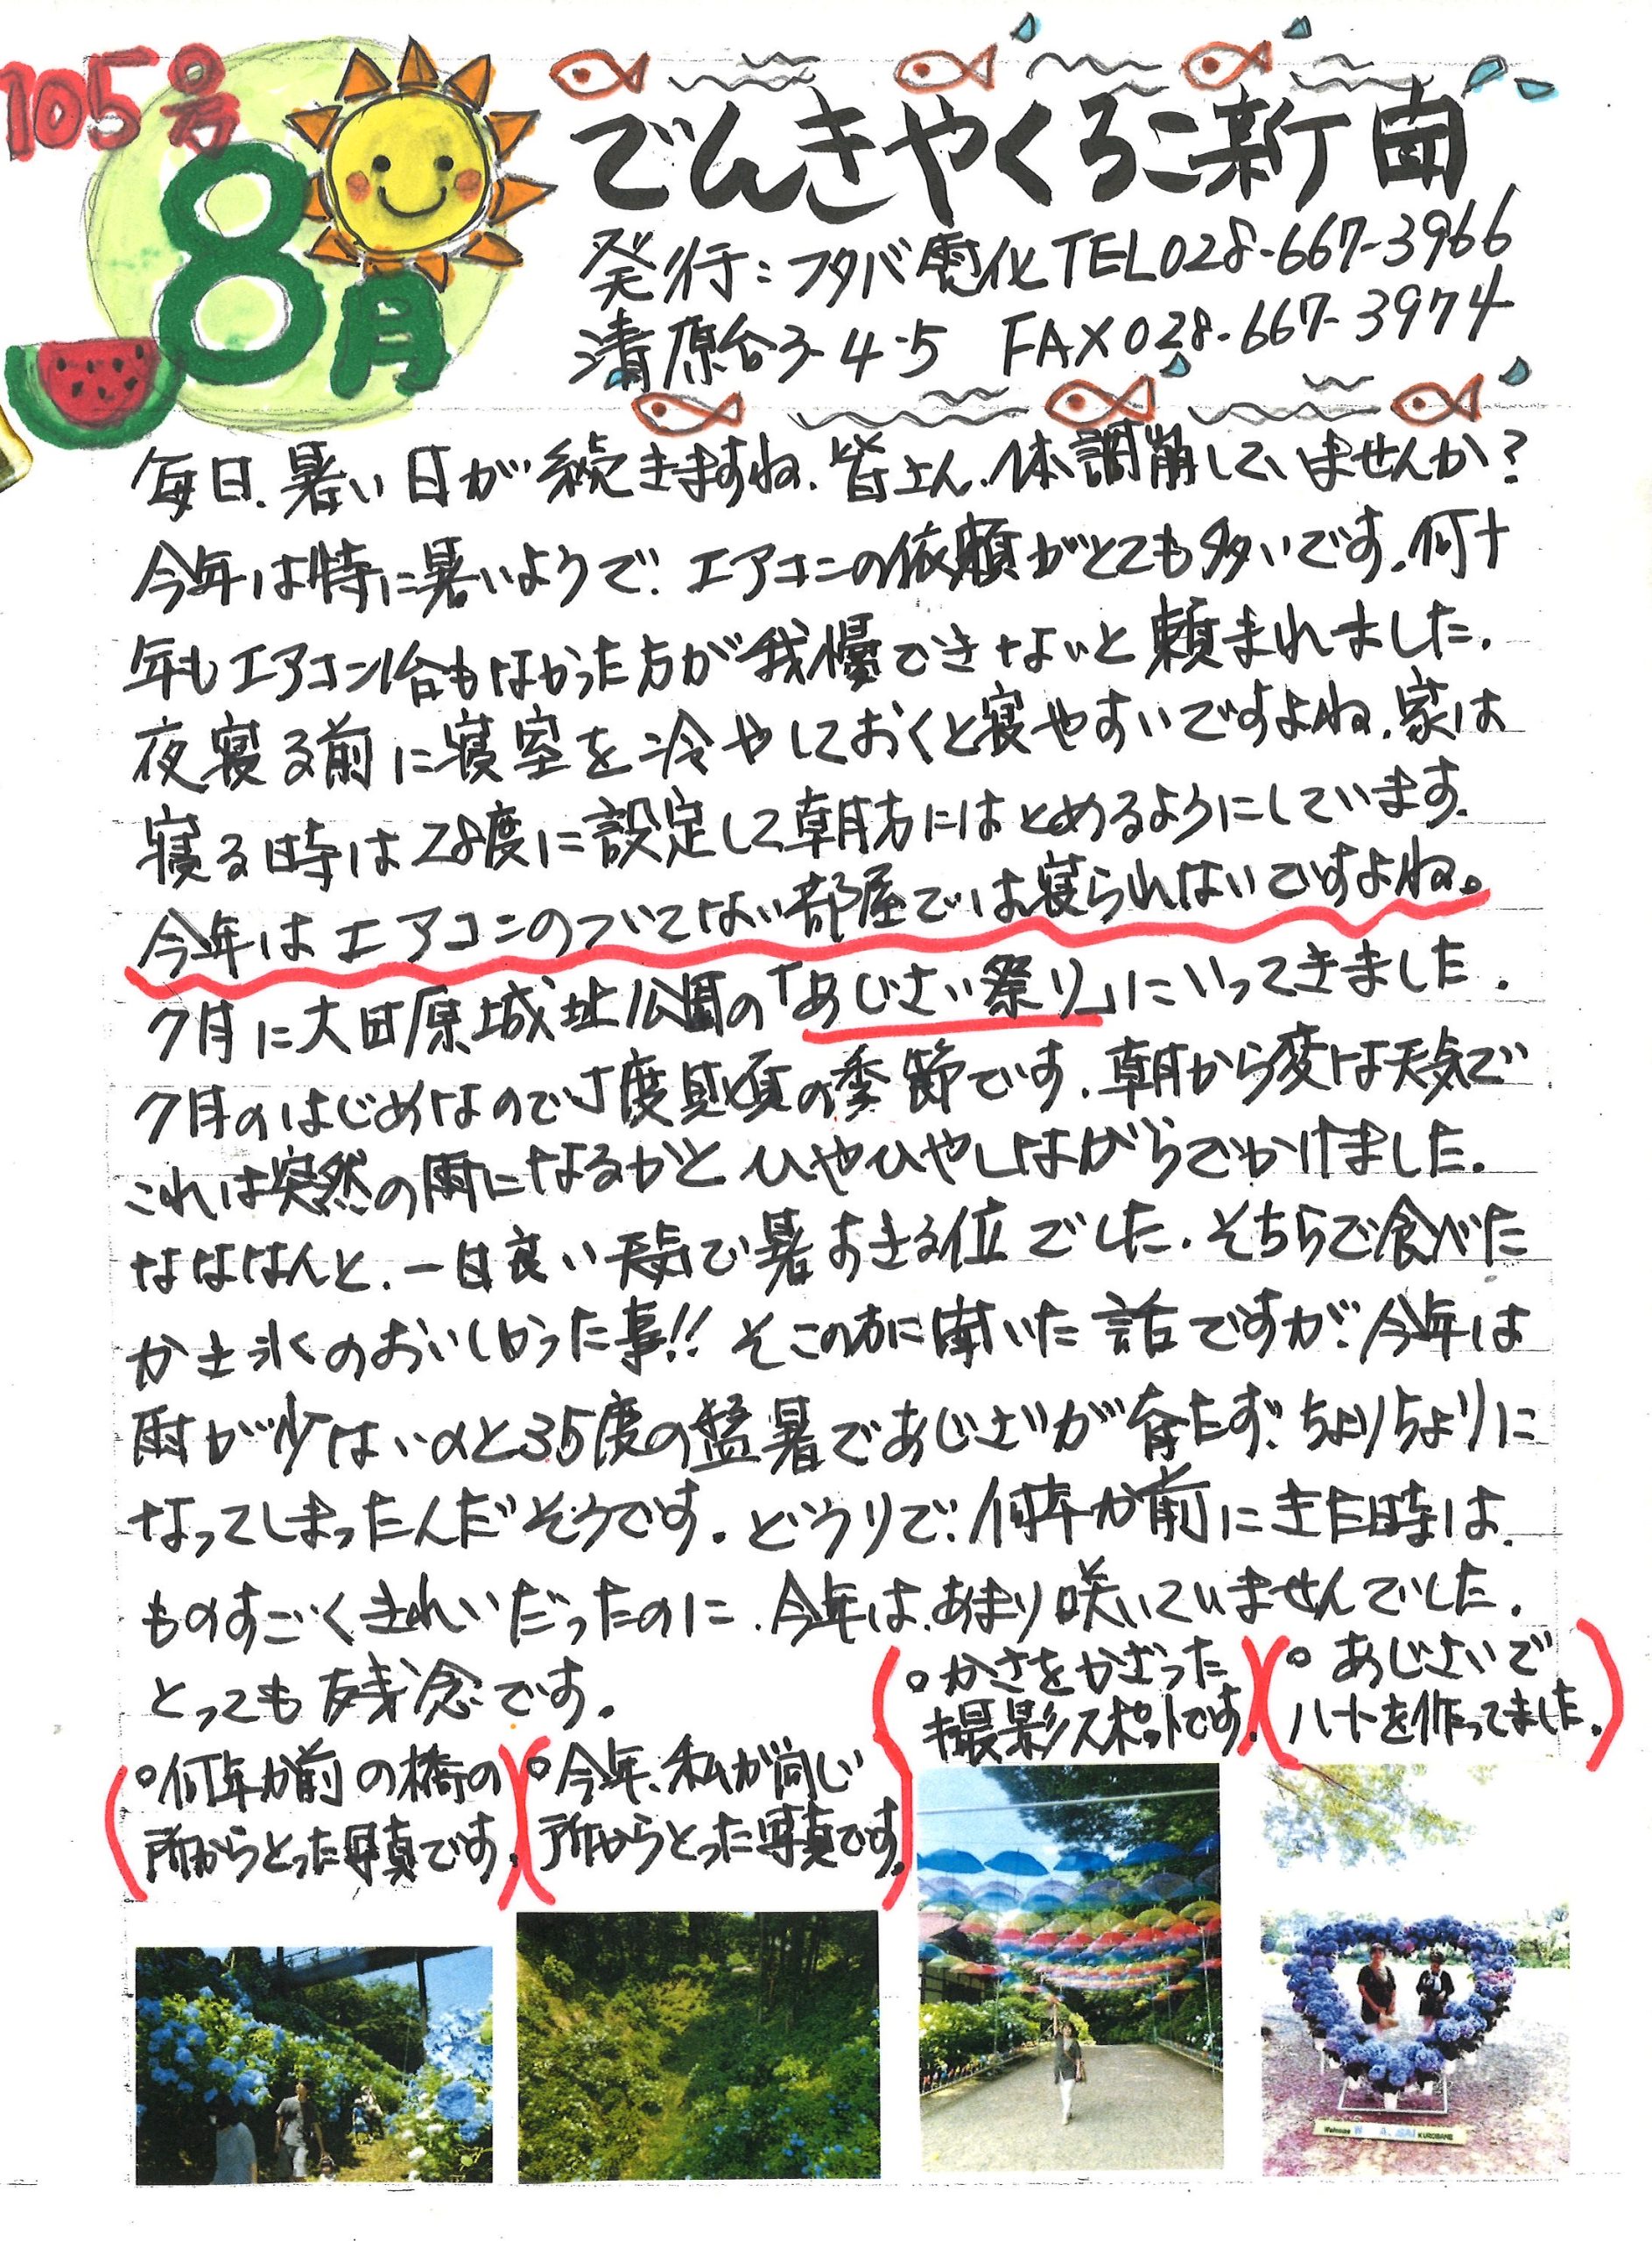 105号
8月
でんきやくろこ新聞
発行：フタバ電化 TEL028-667-3966
清原台3-4-5 FAX028-667-3974
毎日、暑い日が続きますね。皆さん、体調崩していませんか？
今年は特に暑いようで、エアコンの依頼がとても多いです。何十
年もエアコン1台もなかった方が我慢できないと頼まれました。
夜寝る前に寝室を冷やしておくと寝やすいですよね。家は
寝る時は28度に設定して朝方にはとめるようにしています。
今年はエアコンのついてない部屋では寝られないですよね。
7月に大田原城址公園の「あじさい祭り」にいってきました。
7月のはじめなので丁度見頃の季節です。朝から変な天気で
これは突然の雨になるかとひやひやしながらでかけました。
なななんと、一日良い天気で暑すぎる位でした。そちらで食べた
かき氷のおいしかった事!! そこの方に聞いた話ですが、今年は
雨が少ないのと35度の猛暑であじさいが育たず、ちりちりに
なってしまったんだそうです。どうりで、何年か前にきた時は
ものすごくきれいだったのに、今年は、あまり咲いていませんでした。
とっても残念です。
○かさをかざった
撮影スポットです。
○あじさいで
ハートを作ってました。
○何年か前の橋の
所からとった写真です。
○今年、私が同じ
所からとった写真です。
Welcome
KUROBANE